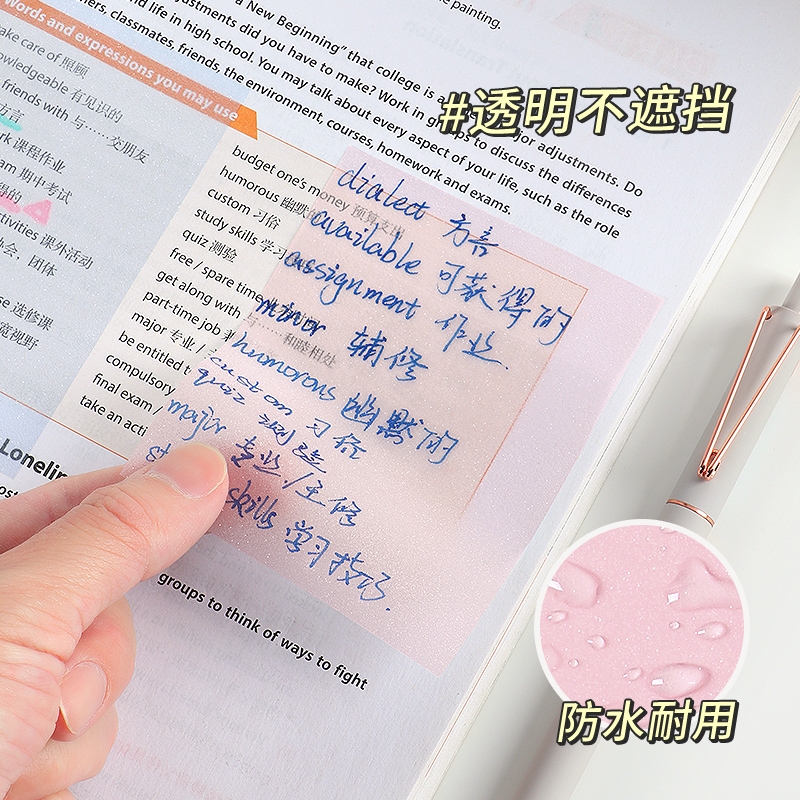 the painting.
A New Beginning" that college is a
nd life in high school. You may talk about every aspect of your life, such as the role
hers, classmates, friends, the environment, courses, homework and exams.
adjustments did you have to make? Work in groups to discuss the differences
jor adjustments. Do
#透明不遮挡
Words and expressions you may use
ake care of 照顾
owledgeable 有见识的
friends with 与……交朋友
方言
rk 课程作业
am 期中考试
得的
ctivities 课外活动
办会，团体
se 选修课
宽视野
budget one's money 预算支出
humorous 幽默的
custom 习俗
study skills 学习
quiz 测验
free / spare time
get along with 与……和睦相处
part-time job
major 专业 /
be entitled t
compulsory
final exam /
take an acti
dialect 方言
available 可获得的
assignment 作业
minor 辅修
humorous 幽默的
custom 习俗
quiz 测验
major 专业/主修
skills 学习技巧
Lonelin
groups to think of ways to fight
防水耐用